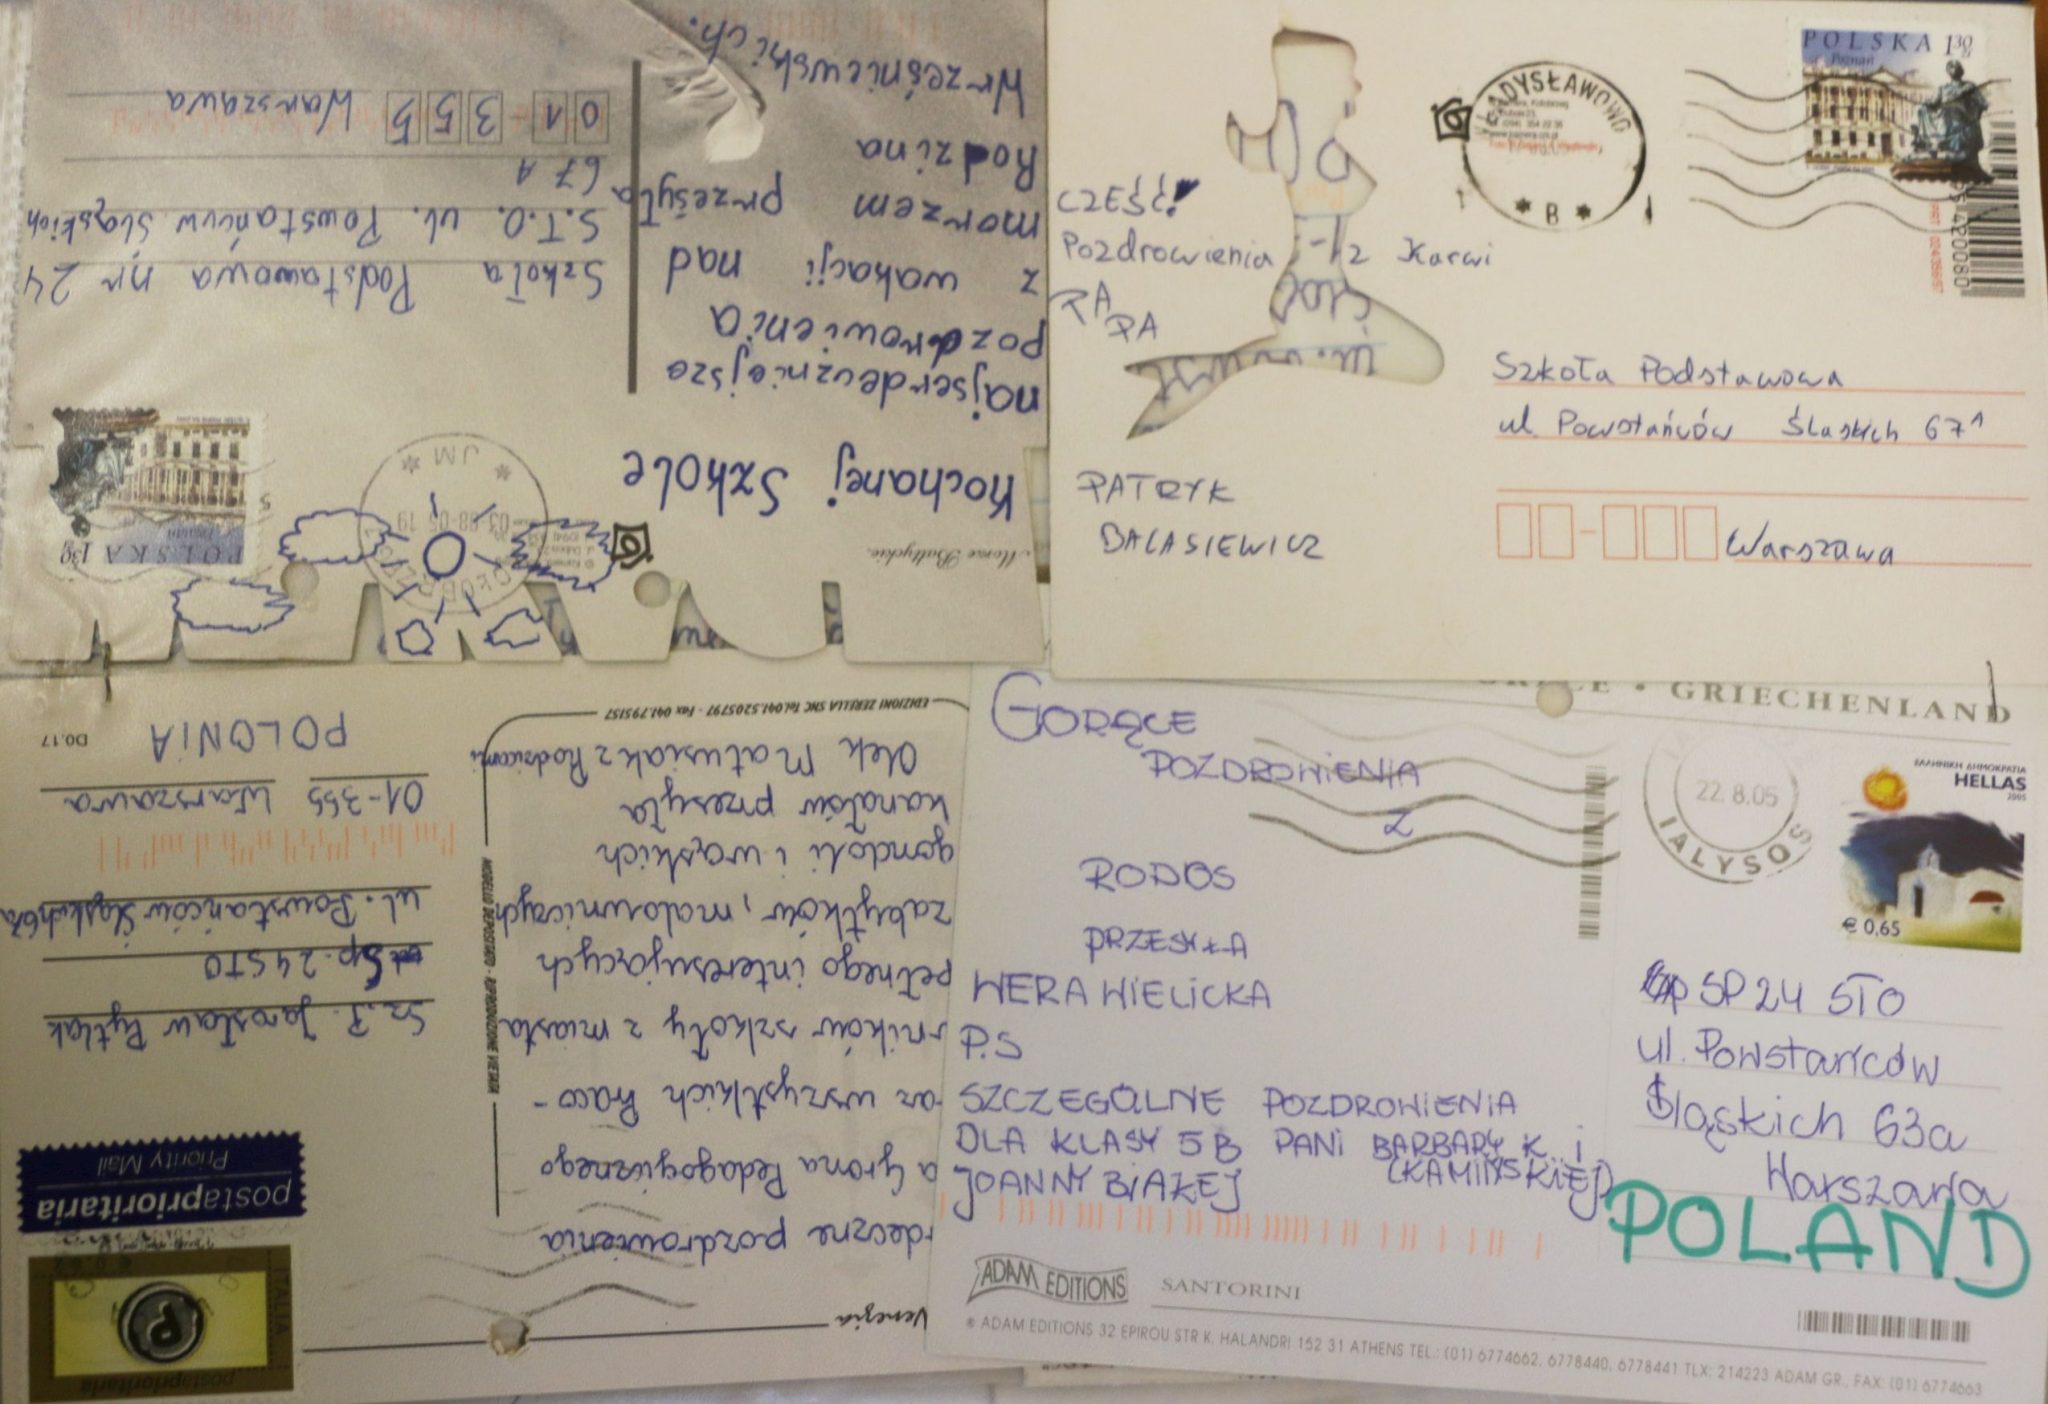 Morze Bałtyckie.
Kochanej Szkole
najserdeczniejsze
pozdrowienia
z wakacji nad
morzem przesyła
Rodzina
Wrześniewskich.
POLSKA 130
Poznań
JM
Szkoła Podstawowa nr 24
S.T.O. ul. Powstańców Śląskich
67A
01-355 Warszawa
CZEŚĆ!
Pozdrowienia z Karwi
PA
PA
PATRYK
BALASIEWICZ
WŁADYSŁAWOWO
B
POLSKA 130
Poznań
Szkoła Podstawowa
ul Powstańców Ślaskich 67A
Warszawa
Venezia
rdeczne pozdrowienia
a Grona Pedagogicznego
az wszystkich Praco-
rników szkoły z miasta
pełnego interesujących
zabytków, malowniczych
gondoli i wąskich
kanałów przesyła
Olek Matusiak z Rodzicami
EDIZIONI ZERELLA SNC Tel.041.5205797 - Fax 041.795157
MODELLO DEPOSITATO - RIPRODUZIONE VIETATA
ITALIA
postaprioritaria
postaprioritaria
Priority Mail
Sz.P. Jarosław Pytlak
Sp. 24 STO
ul. Powstańców Śląskich 67a
01-355 Warszawa
POLONIA
D0.17
GRIECHENLAND
GORĄCE
POZDROWIENIA
Z
RODOS
PRZESYŁA
WERA WIELICKA
P.S
SZCZEGÓLNE POZDROWIENIA
DLA KLASY 5B PANI BARBARY K. i
(KAMIŃSKIEJ)
JOANNY BIAŁEJ
22.8.05
IALYSOS
ΕΛΛΗΝΙΚΗ ΔΗΜΟΚΡΑΤΙΑ
HELLAS
2005
€ 0,65
SP 24 STO
ul. Powstańców
Śląskich 63a
Warszawa
POLAND
ADAM EDITIONS
SANTORINI
® ADAM EDITIONS 32 EPIROU STR K. HALANDRI 152 31 ATHENS TEL.: (01) 6774662, 6778440, 6778441 TLX: 214223 ADAM GR., FAX: (01) 6774663